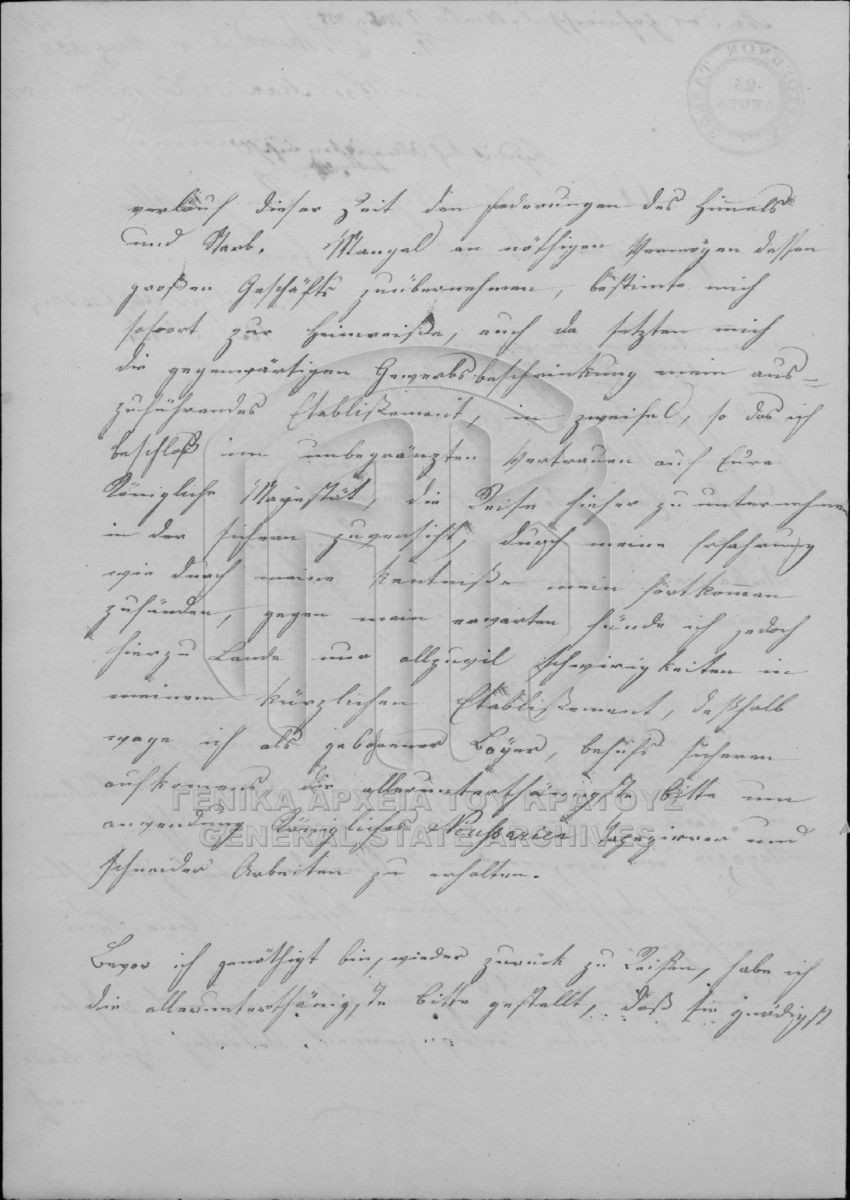 verlauf dieser Zeit den foderungen des Himmels
und Starb. Mangel an nöthigen Vermögen dessen
großen Geschäfts zuübernehmen, bestimte mich
sofort zur Heimreiße, auch da setzten mich
die gegenwärtigen Gewerbsbeschrinkung mein aus=
zuführendes Etablißement, in zweifel, so das ich
beschloß im unbegränzten Vertrauen auf Eure
Königliche Mayestät, die Reise hieher zu unternehmen
in der sichern zuversicht, durch meine Erfahrung
wie durch meine Kentniße mein fortkommen
zufünden, gegen mein erwarten fünde ich jedoch
hierzu Lande nur allzuvil schwirigkeiten in
meinem kürzlichen Etablißement, deßhalb
wage ich als geborener Bayer, behufs sicheren
aufkomens die allerunterthänigste bitte um
anwendung Königliches tapezirrer und
schneider Arbeiten zu erhalten.
Bevor ich genöthigt bin, wieder zurück zu Reißen, habe ich
die allerunterthänigste bitte gestellt, daß sie gnädigst
ΓΕΝΙΚΑ ΑΡΧΕΙΑ ΤΟΥ ΚΡΑΤΟΥΣ
GENERAL STATE ARCHIVES